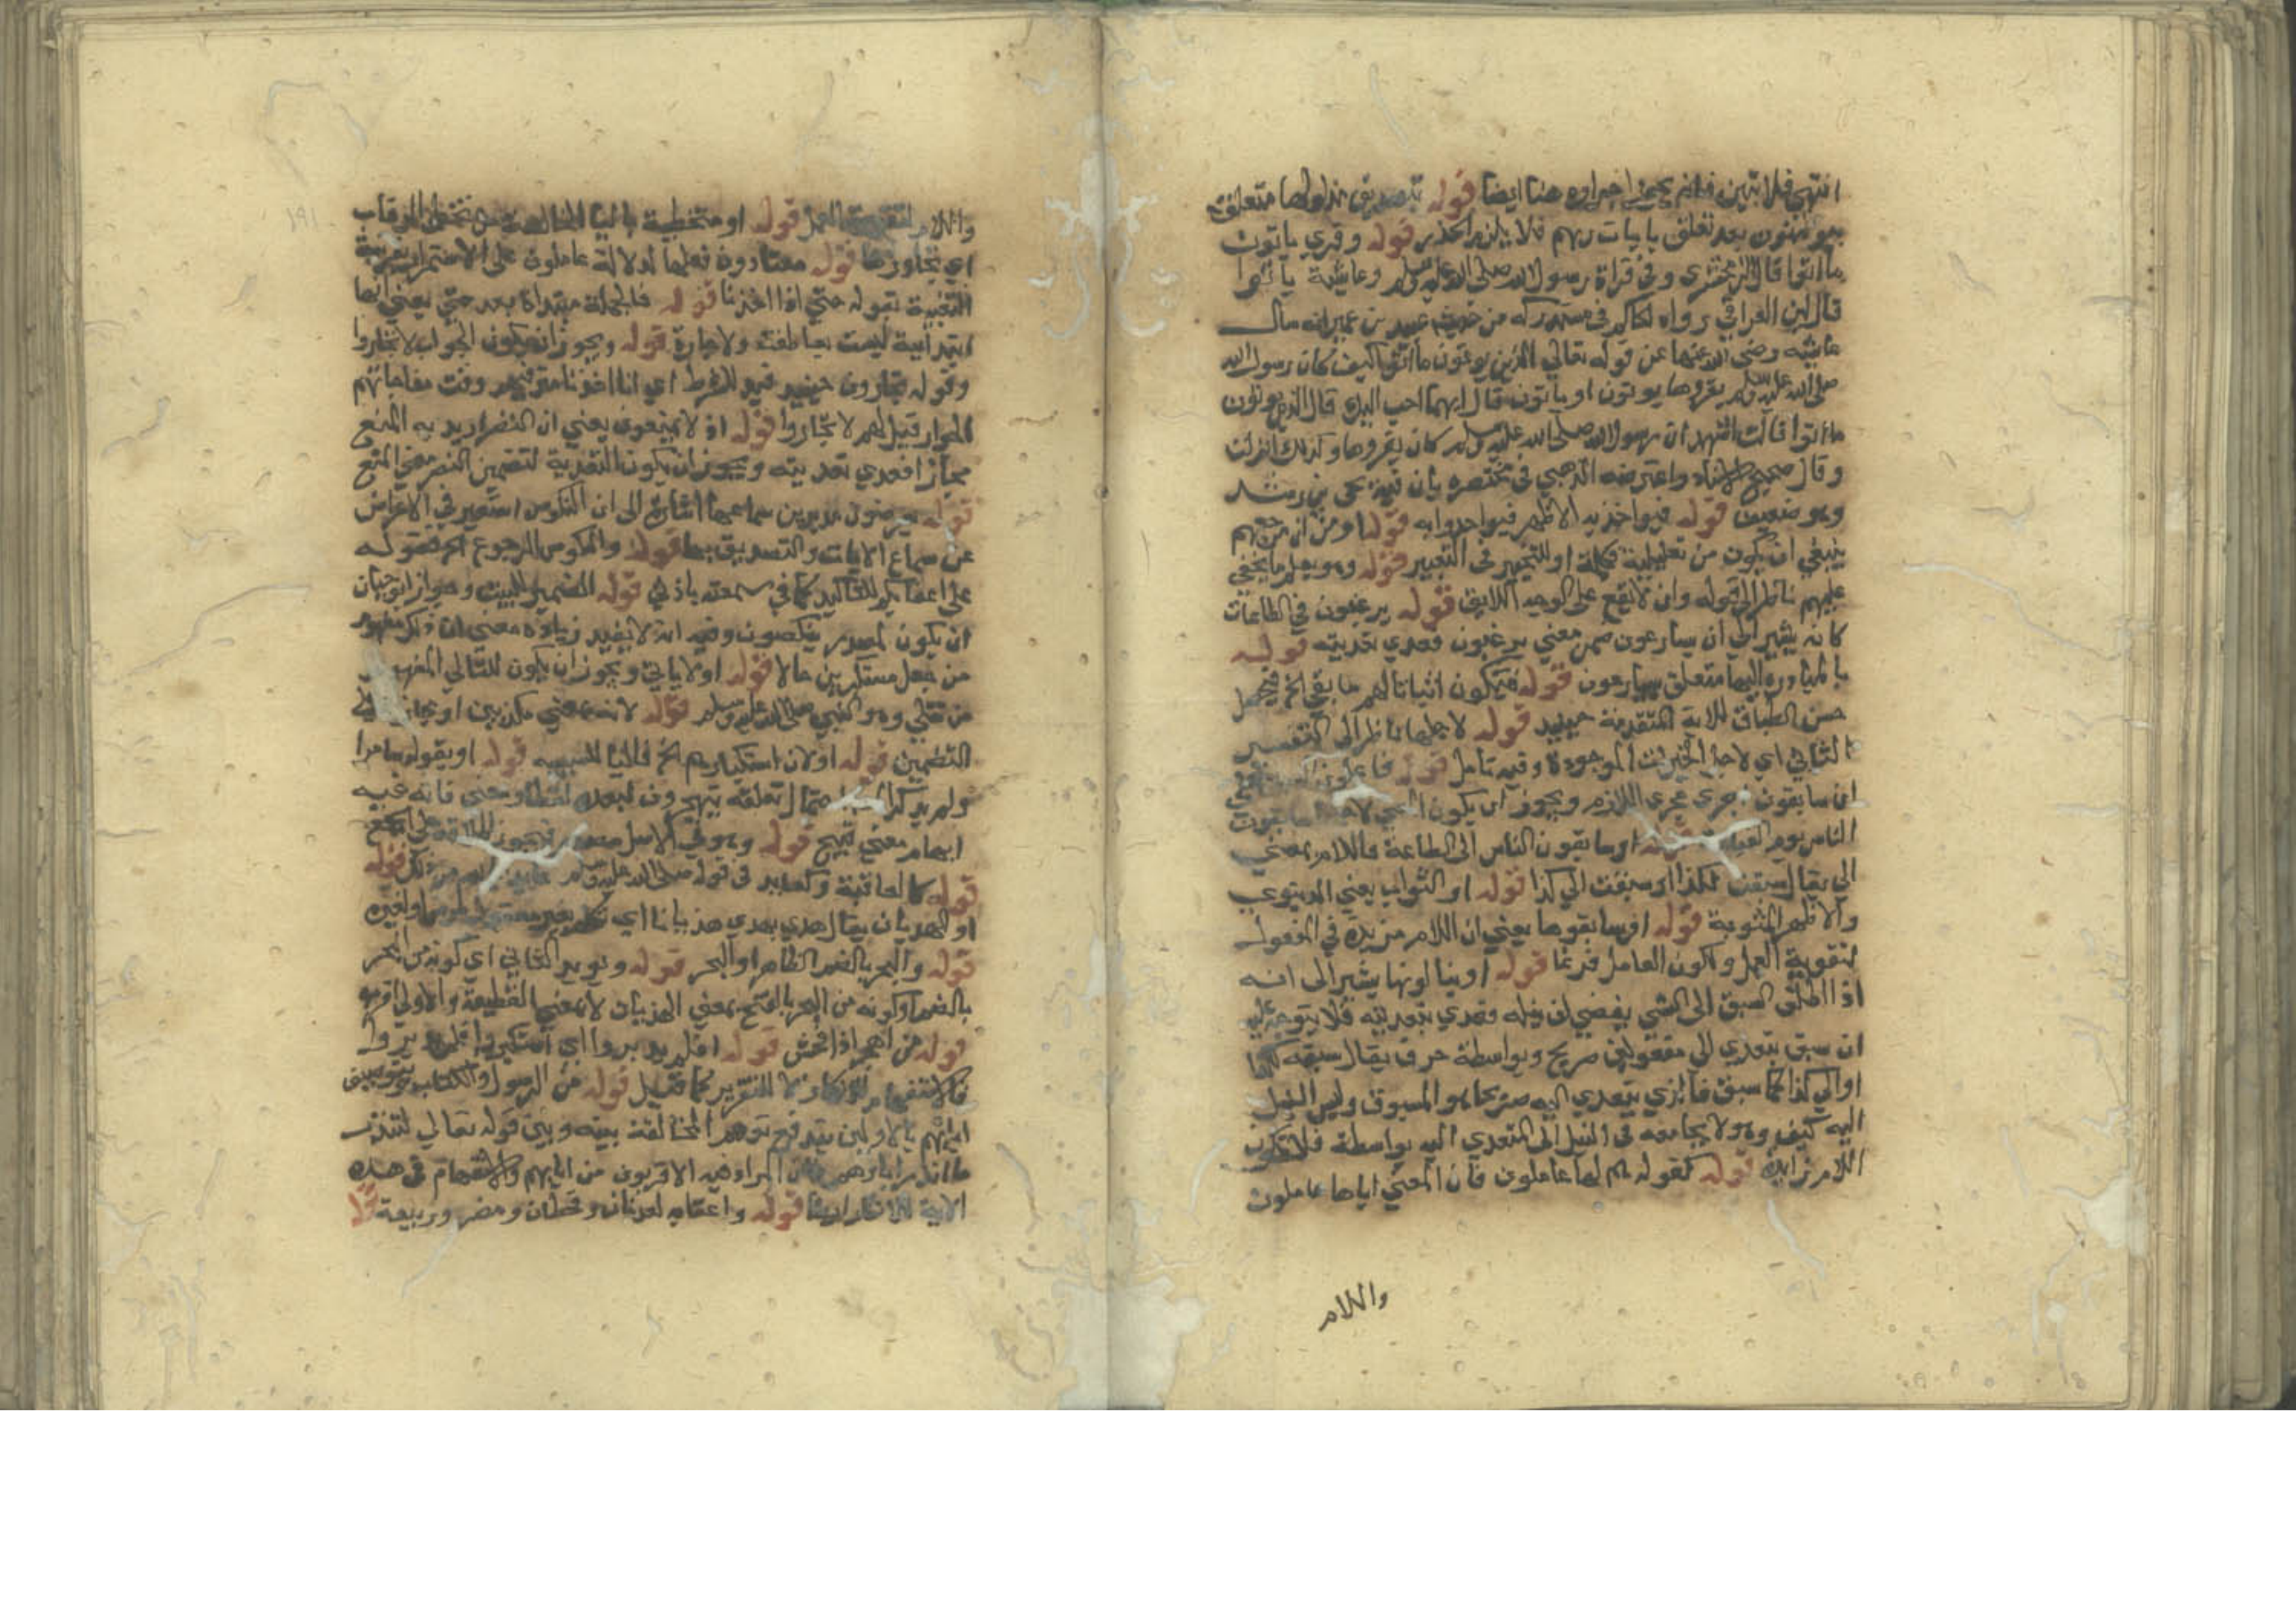 انتهى فلا تبين فلم يجز اجراوه هنا ايضا قوله بتصديق مدلولها متعلق
بيومنون بعد تعلق بايات ربهم فلا يلزم الحذر قوله وقري ياتون
ما اتوا قال الزمخشري وفي قراة رسول الله صلى الله عليه وسلم وعايشة ياتون
قال ابن العراقي رواه الحاكم في مستدركه من حديث عبيد بن عمير انه سال
عايشه رضي الله عنها عن قوله تعالي الذين يوتون ما اتوا كيف كان رسول الله
صلى الله عليه وسلم يقروها يوتون او ياتون قال ايهما احب اليك قال الذين يوتون
ما اتوا قالت اشهد ان رسول الله صلى الله عليه وسلم كان يقروها وكذلك انزلت
وقال صحيح الاسناد واعترضه الذهبي في مختصره بان فيه يحي بن رشد
وهو ضعيف قوله فيواخذ به الاظهر فيواخذوا به قوله او من ان مرجعهم
ينبغي ان يكون من تعليلية فكلمة او للتخيير في التعبير قوله وهو يعلم ما يخفي
عليهم ناظر الي قوله وان لا يقع على الوجه اللايق قوله يرغبون في الطاعات
كانه يشير الى ان يسارعون ضمن معني يرغبون فعدي تعديته قوله
بالمبادرة اليها متعلق بيسارعون قوله فيكون اثباتا لهم ما نفي الخ فيحصل
حسن الطباق للاية المتقدمة حينيد قوله لاجلها ناظر الى التفسير
الثاني اي لاجل الخيرات الموجودة وفيه تامل قوله فاعلون السبق يعني
ان سابقون اجري مجري اللازم ويجوز ان يكون المعني لاجلها سابقون
الناس يوم القيامة قوله او سابقون الناس الى الطاعة فاللام بمعني
الي يقال سبقت لكذا او سبقت الي كذا قوله او الثواب يعني الدنيوي
والاظهر المثوبة قوله او سابقوها يعني ان اللام مزيدة في المفعول
لتقوية العمل ولكون العامل فرعا قوله او ينالونها يشير الى انه
اذ اطلق السبق الى الشي يفضي الى نيله فعدي بتعديته فلا يتوجه عليه
ان سبق يتعدي الي مفعولين صريح وبواسطة حرف يقال سبقه لكذا
او الي كذا كما سبق فالذي يتعدي اليه صريحا هو المسبوق وليس النيل
اليه كيف وهو لا يجامعه في النيل الى المتعدي اليه بواسطة فلا تكون
اللام زايدة قوله كقوله هم لها عاملون فان المعني اياها عاملون
واللام
١٩١
واللام لتقوية العمل قوله او متخطية بالياء من تخطي الرقاب
اي تجاوزها قوله معتادون فعلها لدلالة عاملون على الاستمرار بقرينة
التغيية بقوله حتي اذا اخذنا قوله فالجملة مبتداة بعد حتي يعني انها
ابتدائية ليست بعاطفة ولا جارة قوله ويجوز ان يكون الجواب لا تجاروا
وقوله يجارون حينيد قيد للشرط اي اذا اخذنا مترفيهم وقت مفاجاتهم
الجوار قيل لهم لا تجاروا قوله اذ لا يمنعون يعني ان النصر اريد به المنع
مجازا فعدي تعديته ويجوز ان يكون التعدية لتضمين النصر معني المنع
قوله يعرضون مدبرين سماعها اشارة الى ان النكوص استعير في الاعراض
عن سماع الايات والتصديق بها قوله والنكوص الرجوع الخ فقوله
على اعقابكم للتاكيد كما في سمعته باذني قوله الضمير للبيت وجوز ابو حيان
ان يكون لمصدر ينكصون وفيه انه لا يفيد زيادة معني ان ذكر مفهوم
من جعل مستكبرين حالا قوله او لاياتي ويجوز ان يكون للتالي المفهوم
من تتلي وهو النبي صلى الله عليه وسلم قوله لانه بمعني مكذبين او مجاز
التضمين قوله او لان استكبارهم الخ فالباء للسببية قوله او بقوله سامرا
ولم يذكر احتمال تعلقه بتهجرون لبعده لفظا ومعني فانه فيه
ايهام معني قبيح قوله وهو في الاصل مصدر فيجوز اطلاقه على الجمع
قوله كالعاقبة
او الهذيان يقال هذي يهذي هذيانا اي تكلم بغير معقول لمرض او لغيره
قوله والهجر بالضم الظاهر او الهجر قوله ويويد الثاني اي كونه من الهجر
بالضم او كونه من الهجر بالفتح بمعني الهذيان لا بمعني القطيعة والاولي اقرب
قوله من اهجر اذا افحش قوله افلم يدبروا اي استكبروا فلم يدبروا
فالاستفهام للانكار لا للتقرير كما قيل قوله من الرسول والكتاب
ابائهم بالاولين يندفع توهم المخالفة بينه وبين قوله تعالي لتنذر
ما انذر اباوهم فان المراد به الاقربون من ابايهم والاستفهام في هذه
الاية للانكار ايضا قوله واعقابه لعدنان وقحطان ومضر وربيعة